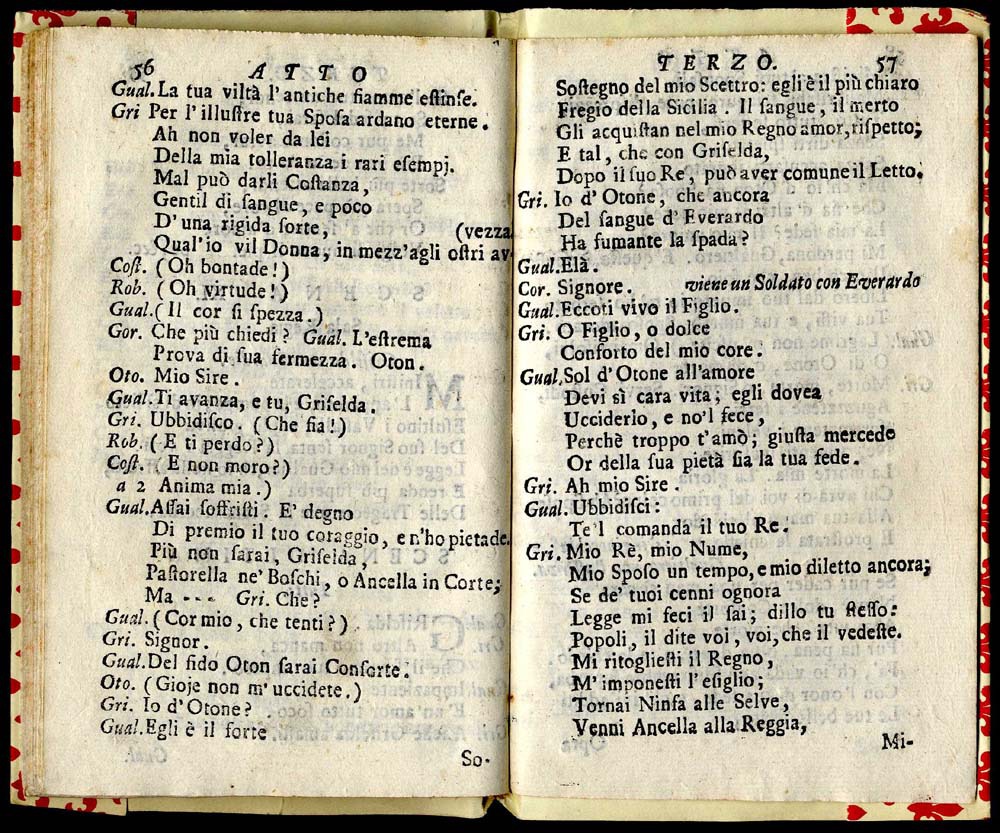 56
ATTO
Gual. La tua viltà l'antiche fiamme eſtinſe.
Gri Per l'illuſtre tua Spoſa ardano eterne.
Ah non voler da lei
Della mia tolleranza i rari eſempj.
Mal può darli Coſtanza,
Gentil di ſangue, e poco
D'una rigida ſorte, (vezza
Qual'io vil Donna, in mezz'agli oſtri av
Coſt. (Oh bontade!)
Rob. (Oh virtude!)
Gual. (Il cor ſi ſpezza.)
Gor. Che più chiedi? Gual. L'eſtrema
Prova di ſua fermezza. Oton.
Oto. Mio Sire.
Gual. Ti avanza, e tu, Griſelda.
Gri. Ubbidiſco. (Che fia!)
Rob. (E ti perdo?)
Coſt. (E non moro?)
a 2 Anima mia.)
Gual. Aſſai ſoffriſti. E' degno
Di premio il tuo coraggio, e n'ho pietade.
Più non ſarai, Griſelda,
Paſtorella ne' Boſchi, o Ancella in Corte;
Ma --- Gri. Che?
Gual. (Cor mio, che tenti?)
Gri. Signor.
Gual. Del fido Oton ſarai Conſorte.
Oto. (Gioje non m'uccidete.)
Gri. Io d'Otone?
Gual. Egli è il forte
So-
TERZO.
57
Soſtegno del mio Scettro: egli è il più chiaro
Fregio della Sicilia. Il ſangue, il merto
Gli acquiſtan nel mio Regno amor, riſpetto;
E tal, che con Griſelda,
Dopo il ſuo Re, può aver comune il Letto.
Gri. Io d'Otone, che ancora
Del ſangue d'Everardo
Ha fumante la ſpada?
Gual. Elà.
Cor. Signore. viene un Soldato con Everardo
Gual. Eccoti vivo il Figlio.
Gri. O Figlio, o dolce
Conforto del mio core.
Gual. Sol d'Otone all'amore
Devi sì cara vita; egli dovea
Ucciderlo, e no'l fece,
Perchè troppo t'amò; giuſta mercede
Or della ſua pietà ſia la tua fede.
Gri. Ah mio Sire.
Gual. Ubbidiſci:
Te'l comanda il tuo Re.
Gri. Mio Rè, mio Nume,
Mio Spoſo un tempo, e mio diletto ancora;
Se de' tuoi cenni ognora
Legge mi feci il ſai; dillo tu ſteſſo:
Popoli, il dite voi, voi, che il vedeſte.
Mi ritoglieſti il Regno,
M'imponeſti l'eſiglio;
Tornai Ninfa alle Selve,
Venni Ancella alla Reggia,
Mi-